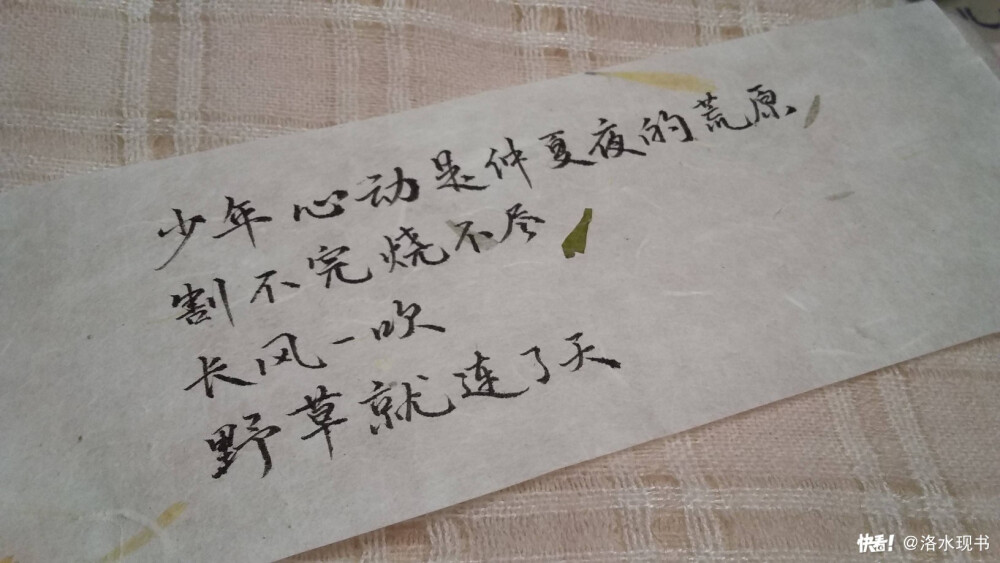 少年心动是仲夏夜的荒原、
割不完烧不尽
长风一吹
野草就连了天
快看！@洛水现书